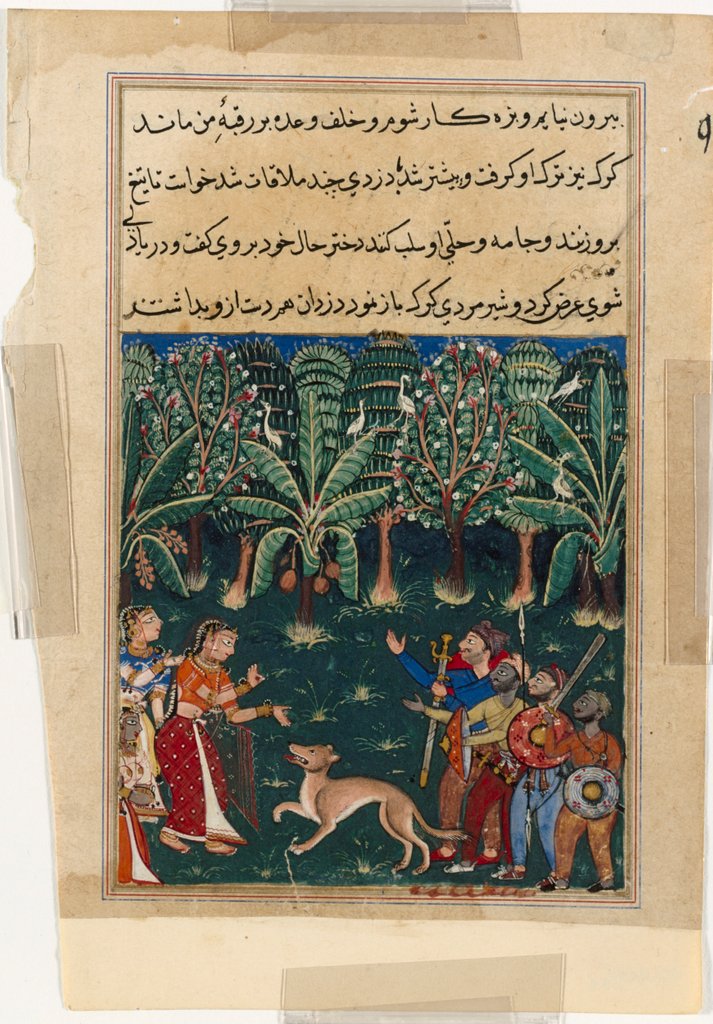 بیرون نیایم و بزه کار شوم و خلف وعده بر رقبهٔ من ماند
کرک نیز ترک او کرفت و پیشتر شد دزدی چند ملاقات شد خواست تا تیغ
بروزنند و جامه و حلّی او سلب کنند دختر حال خود بر وی کفت و در باز
شوی عرض کرد و شیر مردی کرک باز نمود دزدان هم دست ازو بداشتند
9